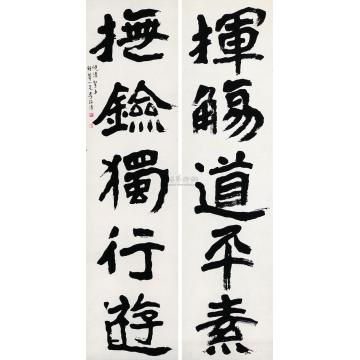 揮觴道平素
撫鐱獨行遊